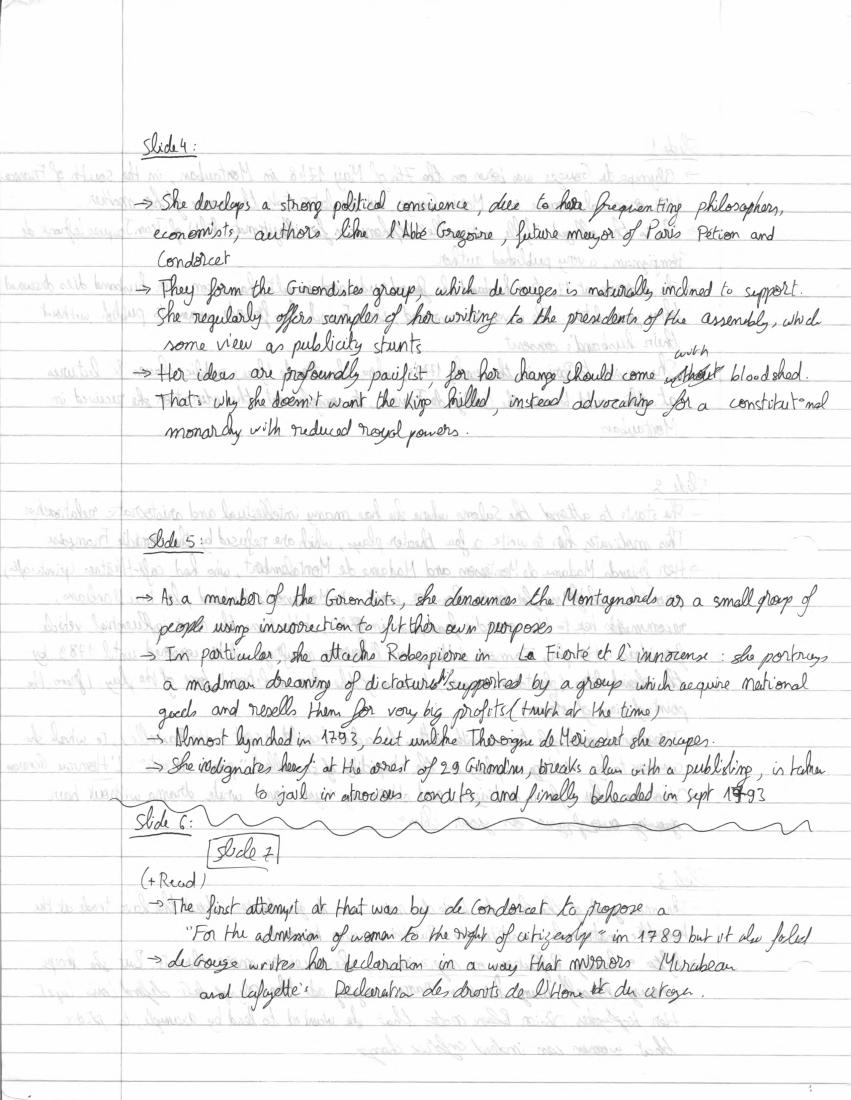 Slide 4:
→ She develops a strong political consience, due to her frequenting philosophers,
economists, authors like l'Abbé Gregoire, future mayor of Paris Pétion and
Condorcet
→ They form the Girondistes group, which de Gouges is naturally inclined to support.
She regularly offers samples of her writing to the presidents of the assembly, which
some view as publicity stunts
with
→ Her ideas are profoundly pacifist, for her change should come bloodshed.
That's why she doesn't want the King killed, instead advocating for a constitutional
monarchy with reduced royal powers.
Slide 5:
→ As a member of the Girondists, she denounces the Montagnards as a small group of
people using insurrection to fit their own purposes
→ In particular, she attacks Robespierre in La Fierté et l'innocense: she portrays
a madman dreaming of dictature "supported by a group which acquire national
goods and resells them for very big profits (truth at the time)
→ Almost lynched in 1793, but unlike Theroigne de Mericourt she escapes.
→ She indignates herself at the arrest of 29 Girondins, breaks a law with a publishing, is taken
to jail in atrocious condites, and finally beheaded in sept 1793
Slide 6:
Slide 7
(+Read)
→ The first attempt at that was by de Condorcet to propose a
"For the admission of woman to the right of citizenship" in 1789 but it also failed
→ de Gouge writes her declaration in a way that mirrors Mirabeau
and Lafayette's Declaration des droits de l'Home et du citoyen.